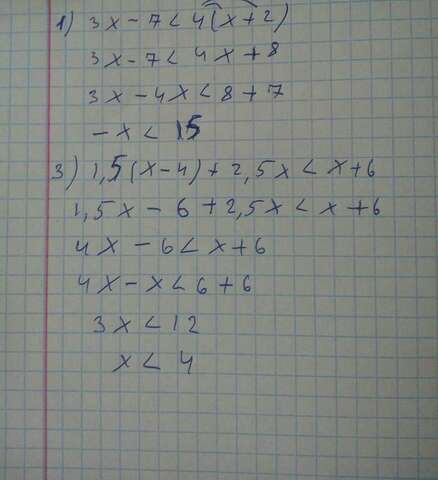 1) 3x - 7 < 4(x + 2)
3x - 7 < 4x + 8
3x - 4x < 8 + 7
- x < 15
3) 1,5(x - 4) + 2,5x < x + 6
1,5x - 6 + 2,5x < x + 6
4x - 6 < x + 6
4x - x < 6 + 6
3x < 12
x < 4